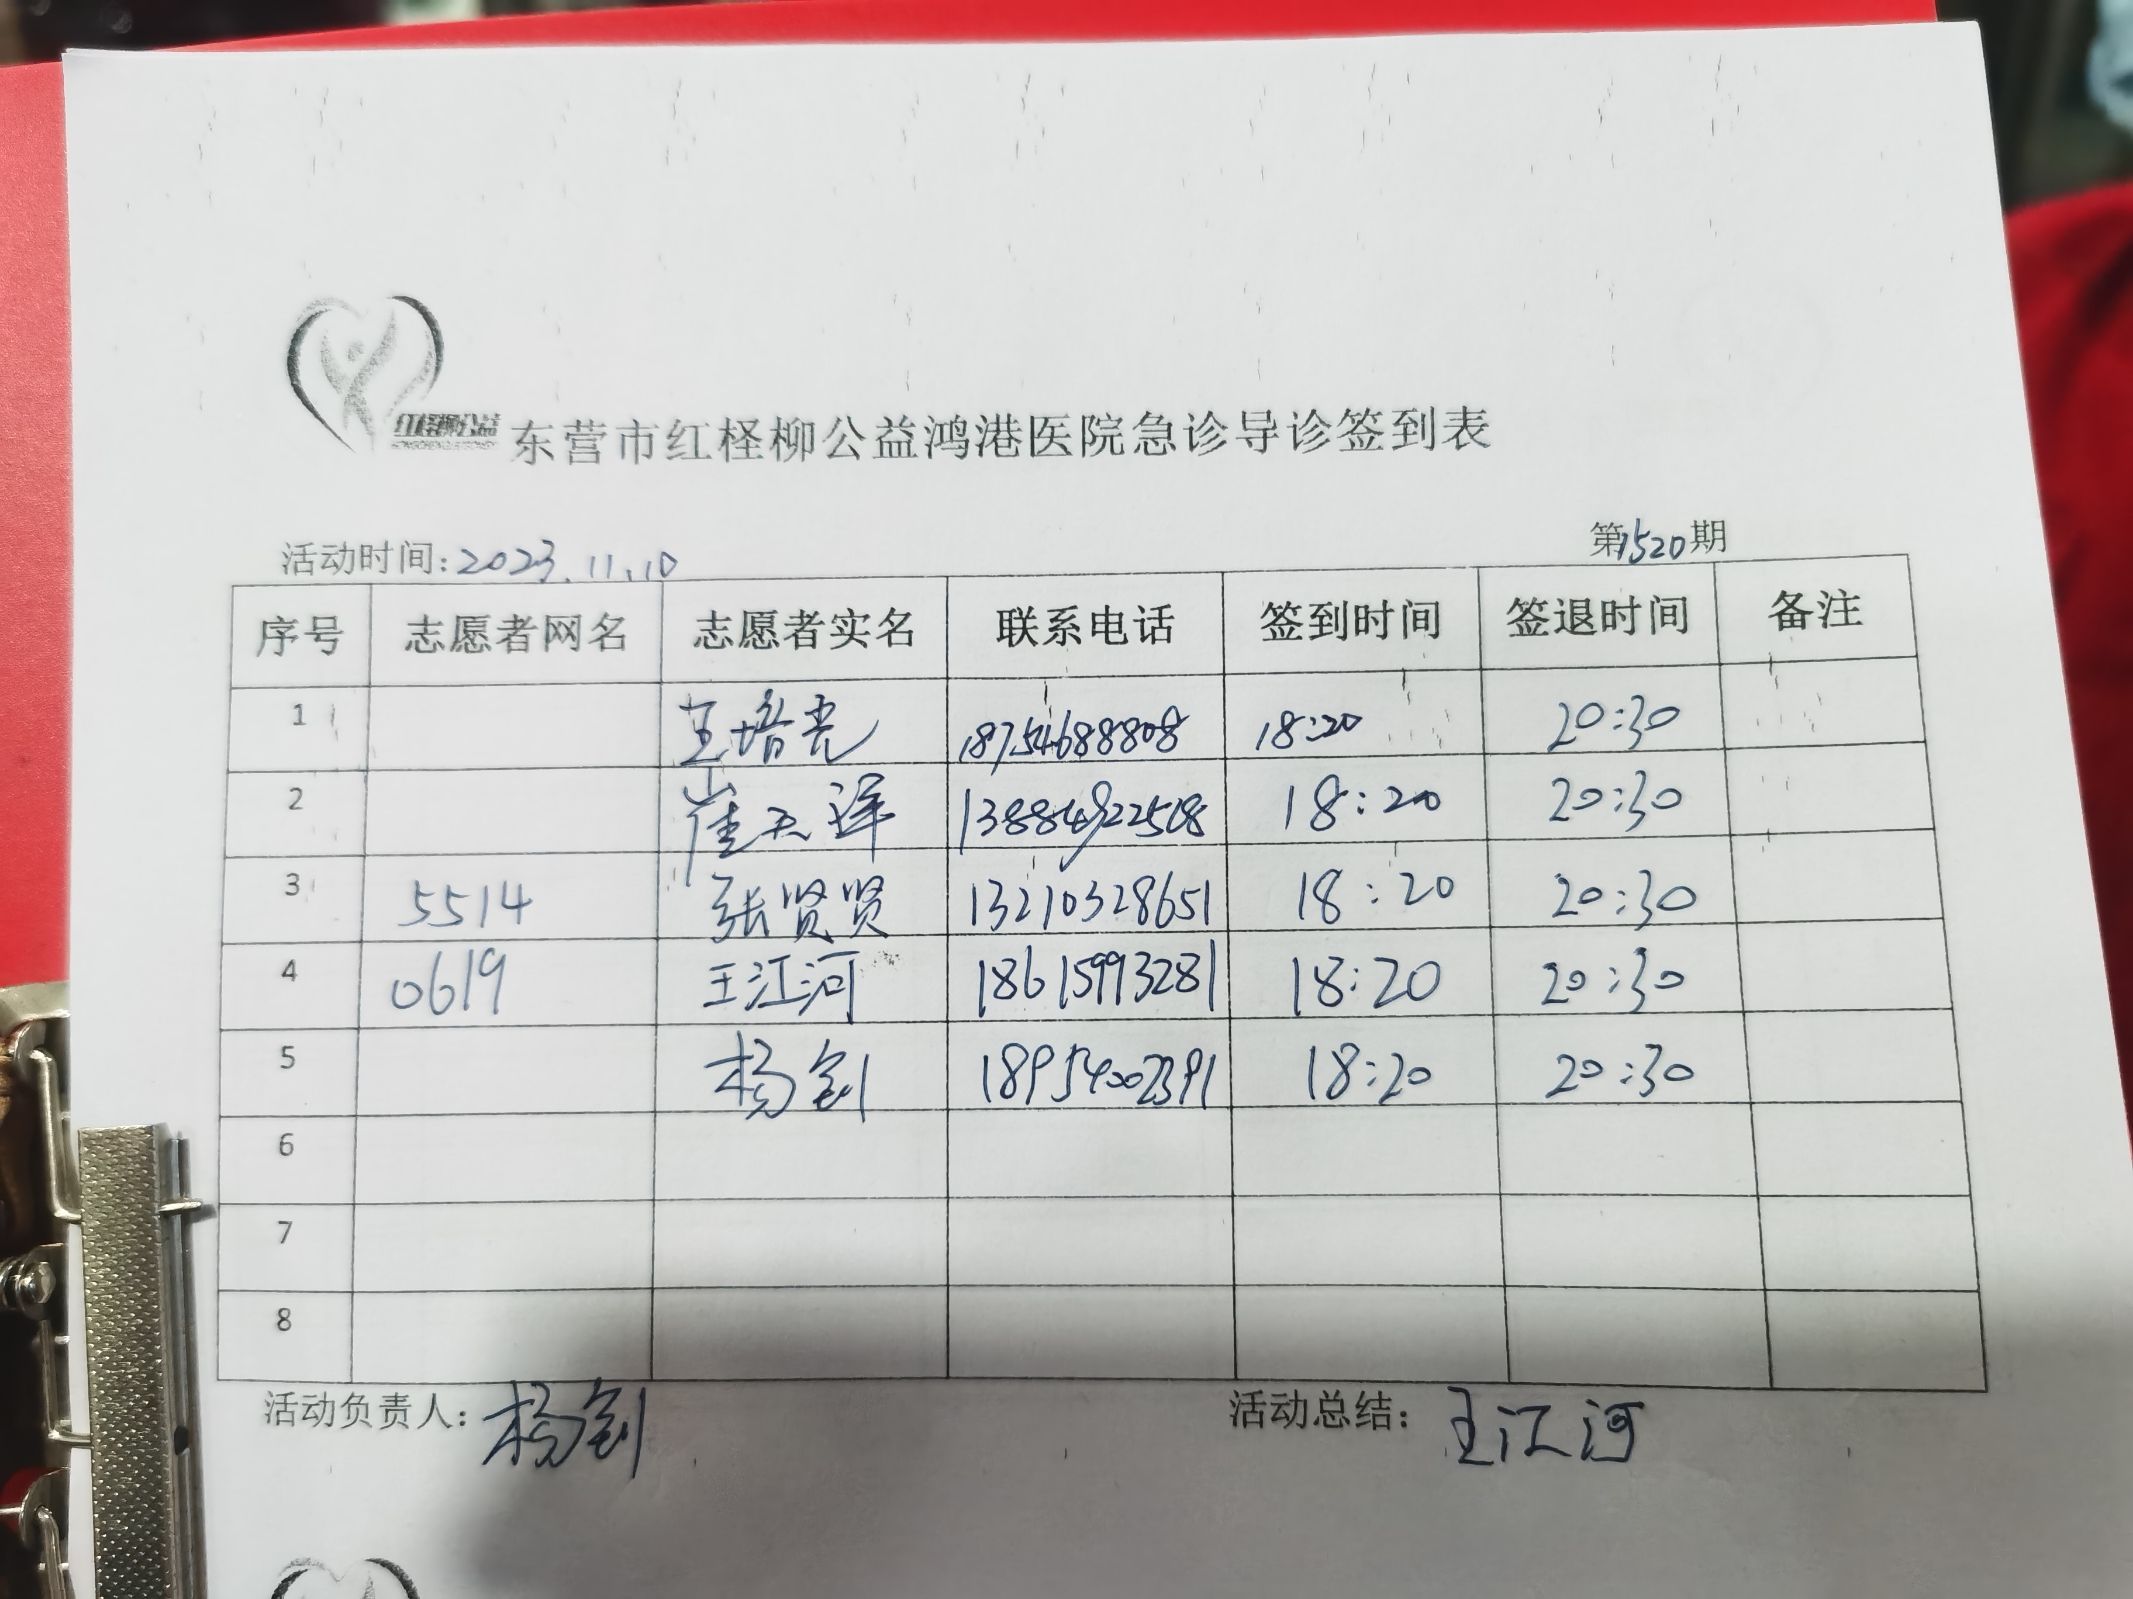 红柽柳公益
东营市红柽柳公益鸿港医院急诊导诊签到表
活动时间:2023.11.10 第1520期
序号 志愿者网名 志愿者实名 联系电话 签到时间 签退时间 备注
1 王培亮 18754688808 18:20 20:30
2 崔天译 18:20 20:30
3 5514 张贤贤 13210328651 18:20 20:30
4 0619 王江河 18615993281 18:20 20:30
5 杨剑 18954002391 18:20 20:30
6
7
8
活动负责人:杨剑 活动总结:王江河